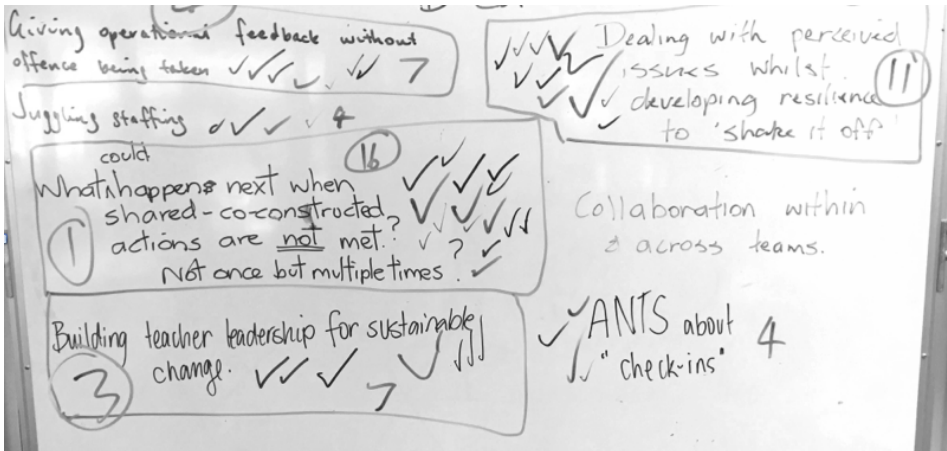 Giving operational feedback without
offence being taken ✓✓✓✓ ✓✓ 7
Juggling staffing ✓✓✓✓ 4
could
16
What happens next when
shared-co-constructed
actions are not met?
Not once but multiple times?
1
Building teacher leadership for sustainable
change. ✓✓✓ ✓✓✓✓ 7
3
Dealing with perceived
issues whilst
developing resilience
to 'shake it off'
11
Collaboration within
& across teams.
✓✓ ANTS about 4
✓✓ "check-ins"